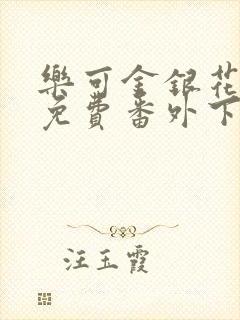 樂可金銀花
免費番外下
汪玉霞